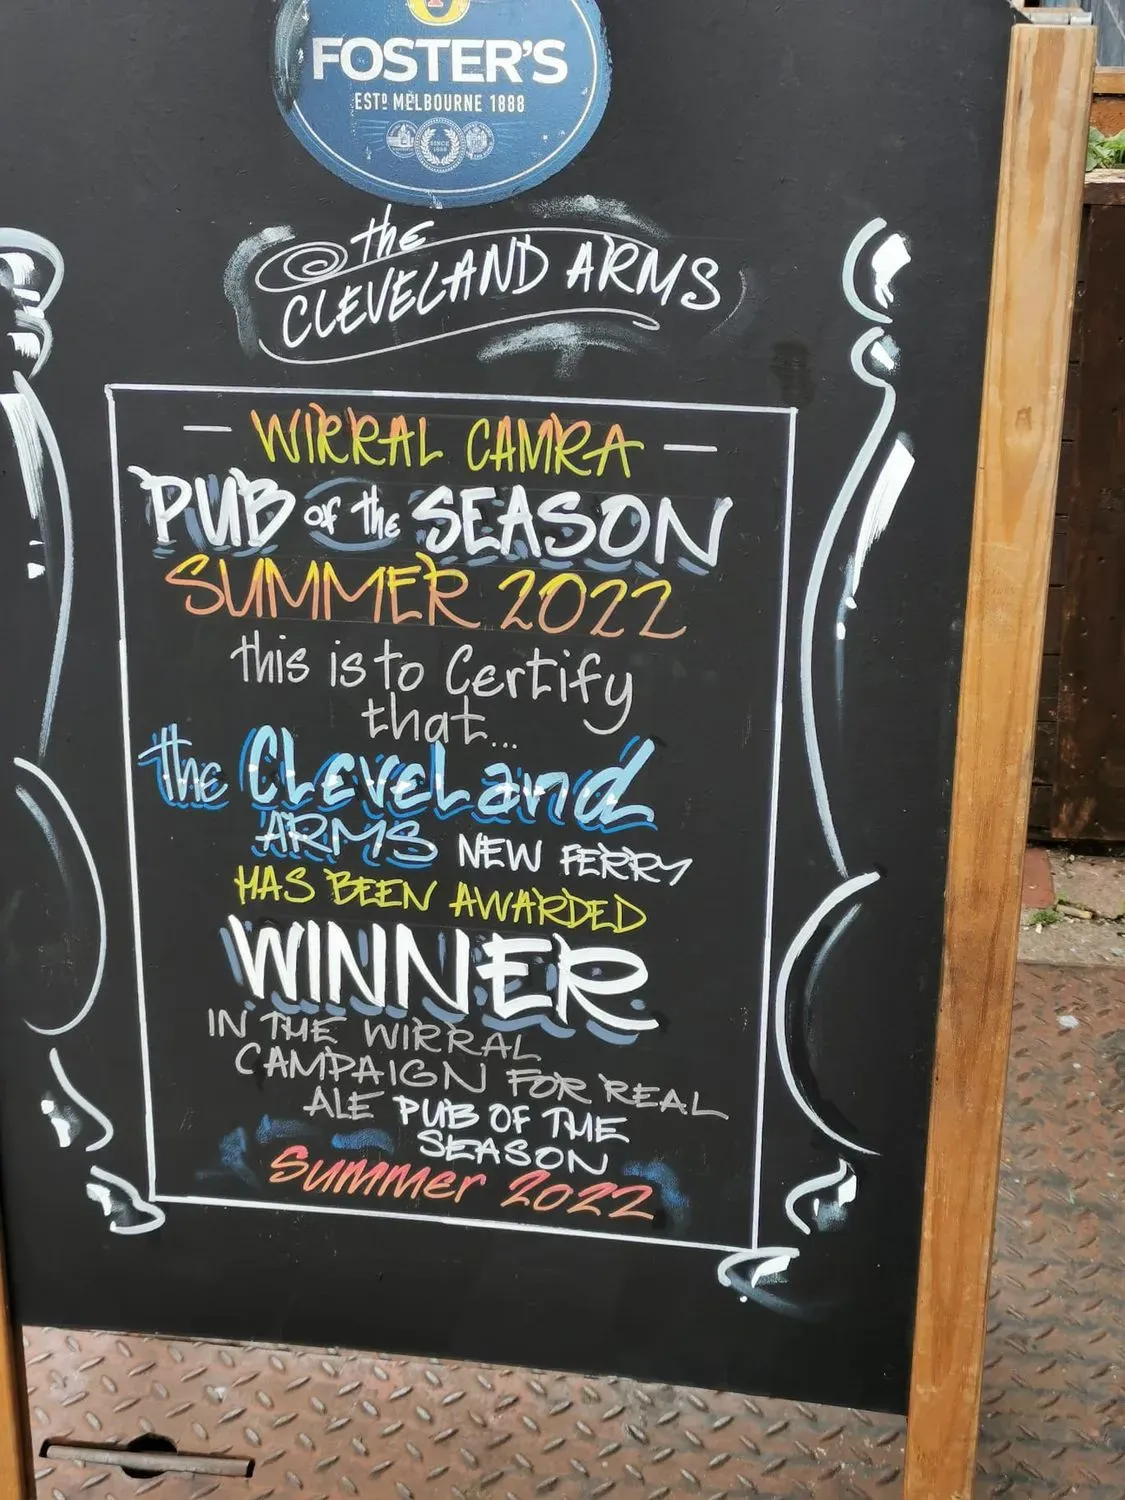 FOSTER'S
ESTD MELBOURNE 1888
SINCE
1888
the
CLEVELAND ARMS
— WIRRAL CAMRA —
PUB of the SEASON
SUMMER 2022
this is to Certify
that...
the CLeveLand
ARMS NEW FERRY
HAS BEEN AWARDED
WINNER
IN THE WIRRAL
CAMPAIGN FOR REAL
ALE PUB OF THE
SEASON
Summer 2022